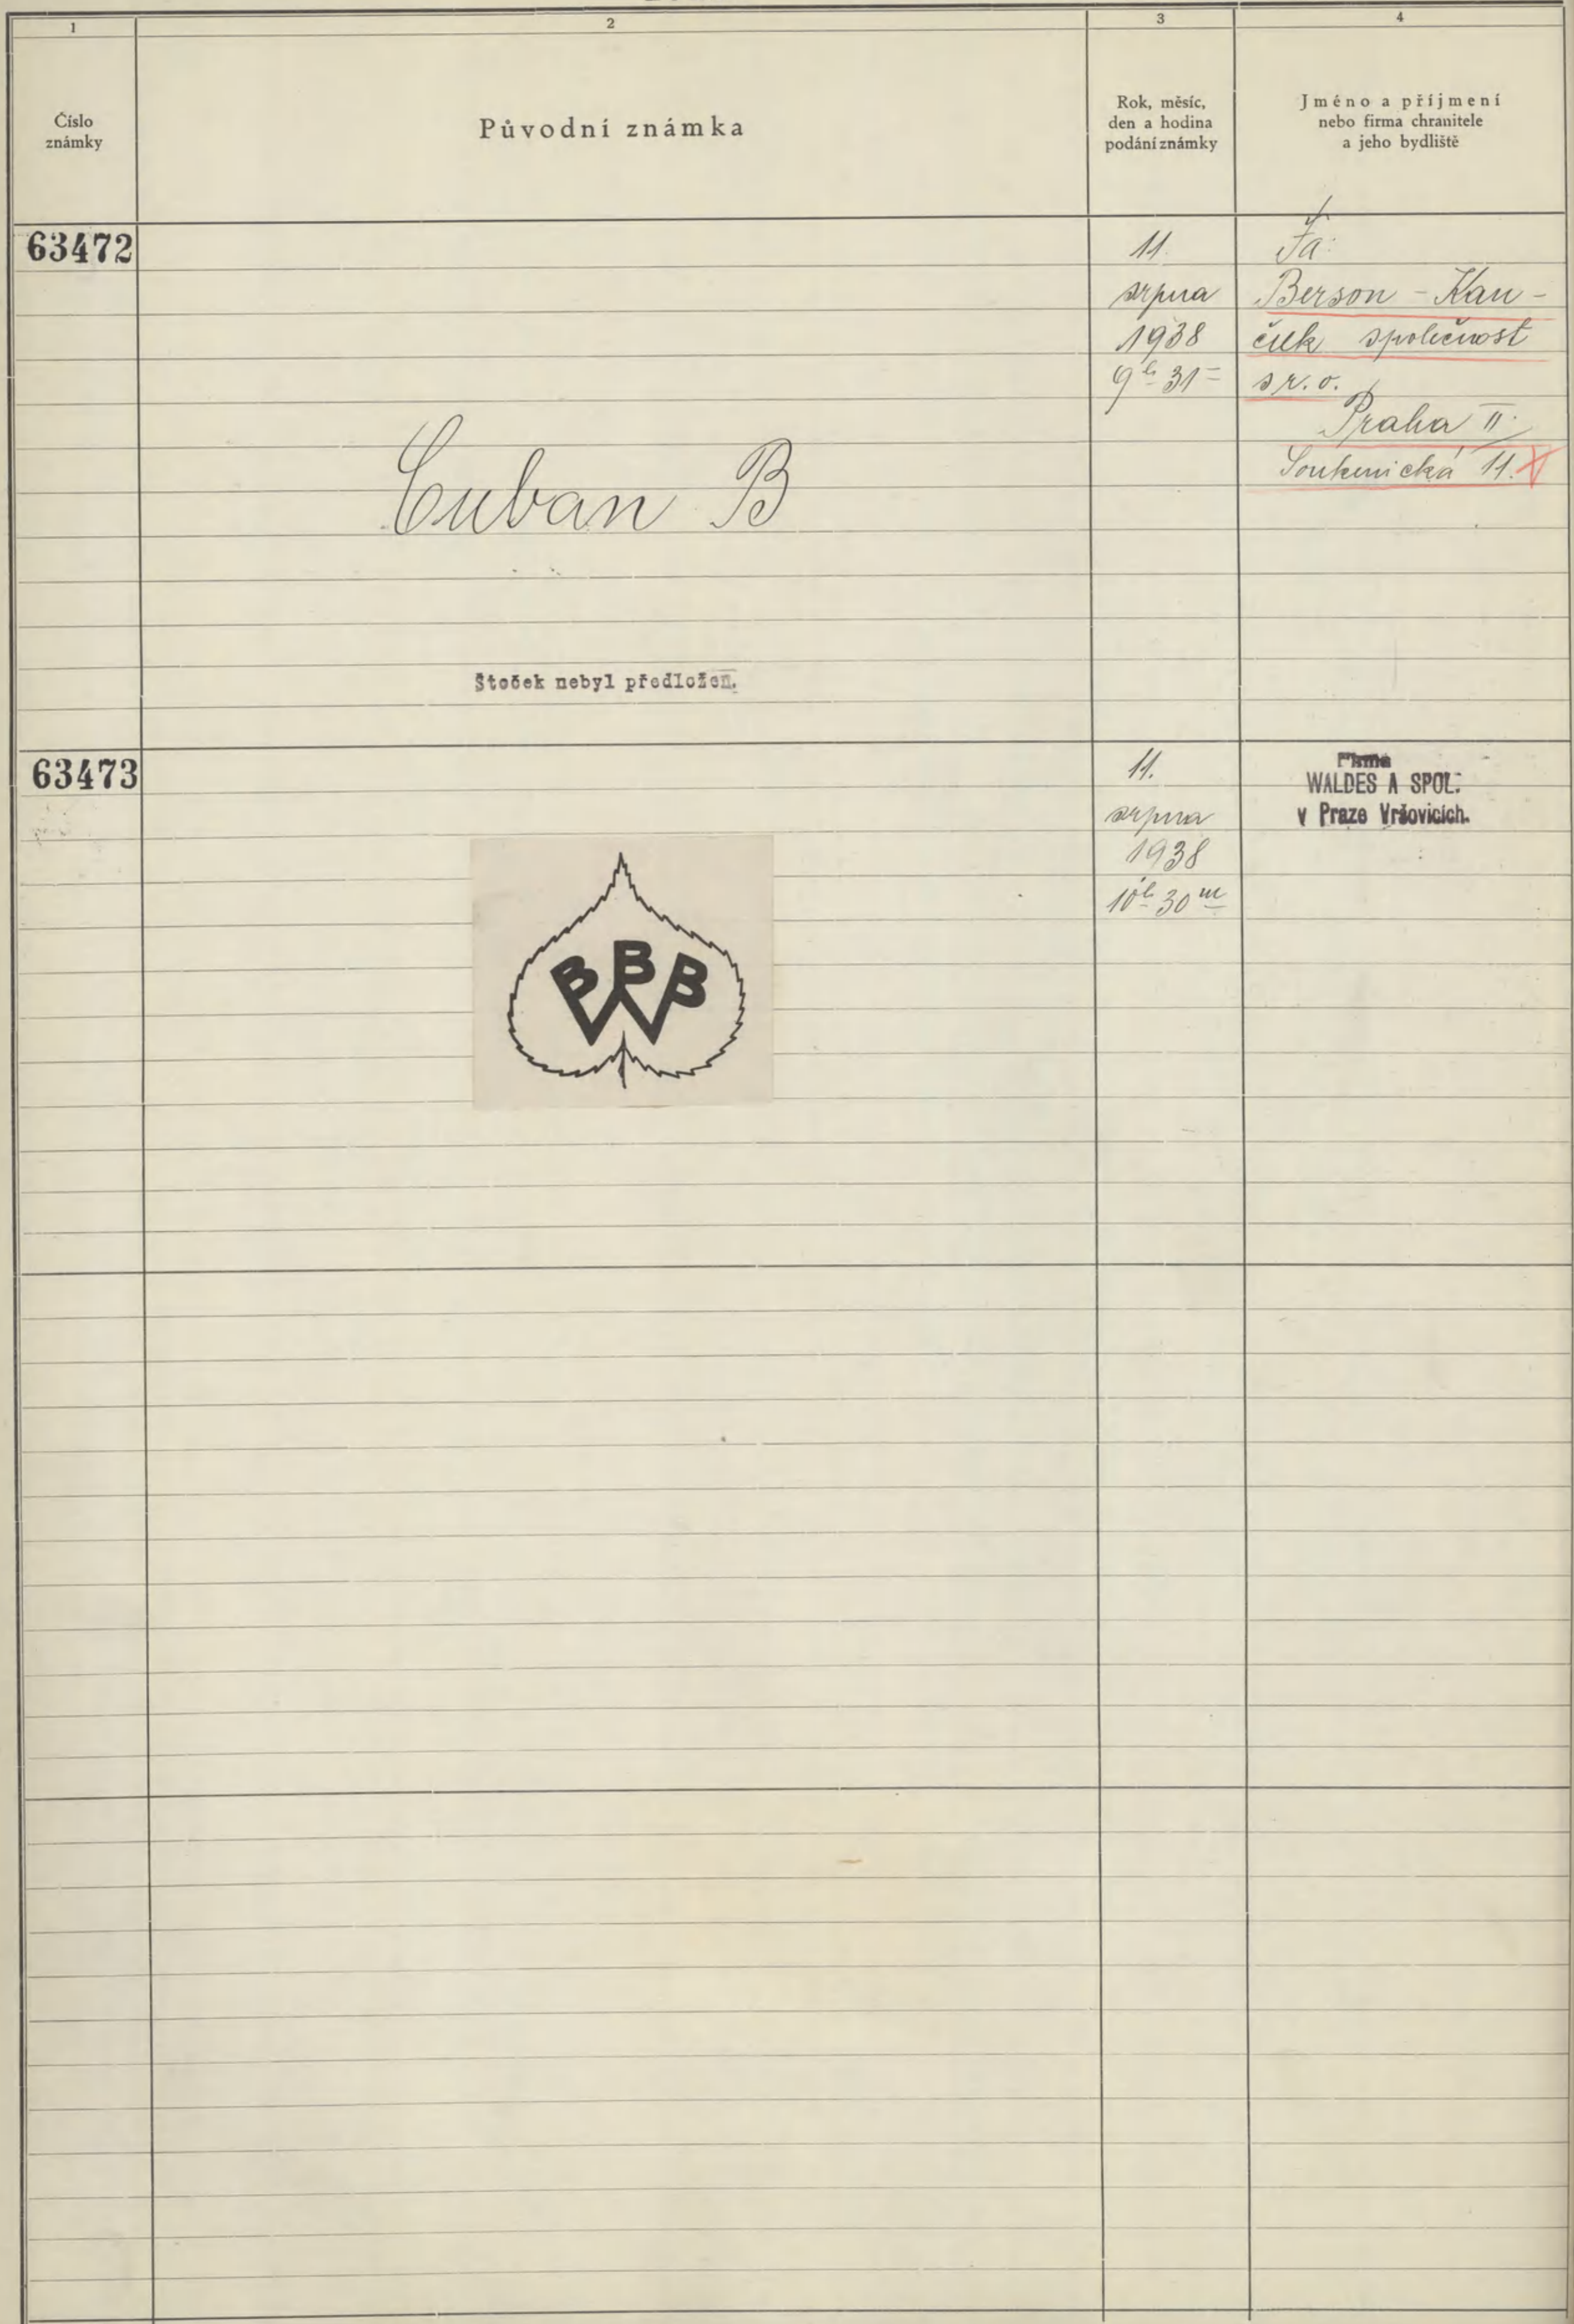 1
2
3
4
Číslo
známky
Původní známka
Rok, měsíc,
den a hodina
podání známky
Jméno a příjmení
nebo firma chranitele
a jeho bydliště
63472
Cuban B
Štoček nebyl předložen.
11.
srpna
1938
9h 31
Fa:
Berson - Kau-
čuk společnost
s r. o.
Praha II.
Soukenická 11.
63473
BBB
W
11.
srpna
1938
10h 30m
Firma
WALDES A SPOL.
v Praze Vršovicích.